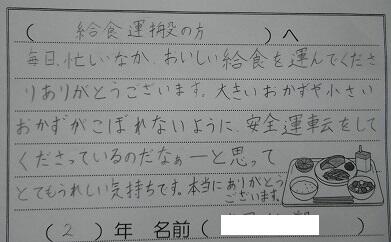 （ 給食運搬の方 ）へ
毎日、忙しいなか、おいしい給食を運んでくださ
りありがとうございます。大きいおかずや小さい
おかずがこぼれないように、安全運転をして
くださっているのだなぁーと思って
とてもうれしい気持ちです。本当にありがとう
ございます。
（ 2 ）年 名前（